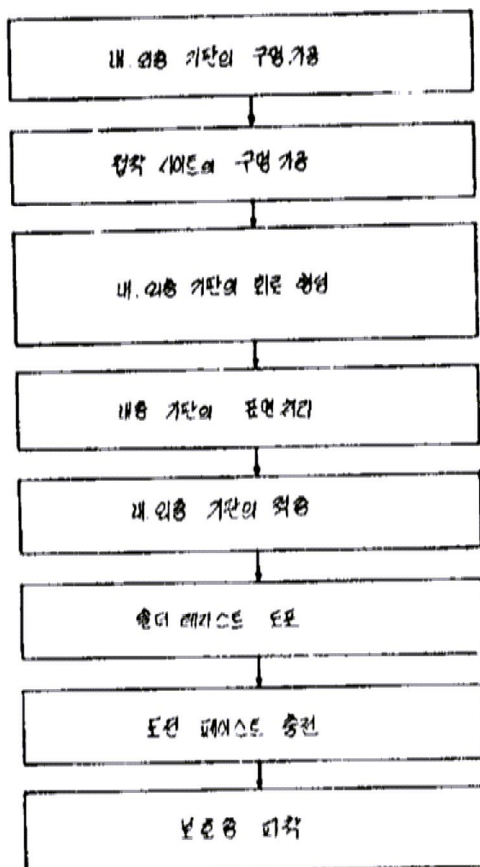 내.외층 기판의 구멍 가공
접착 시이트의 구멍 가공
내.외층 기판의 회로 형성
내층 기판의 표면처리
내.외층 기판의 적층
솔더 레지스트 도포
도전 페이스트 충전
보호층 피착